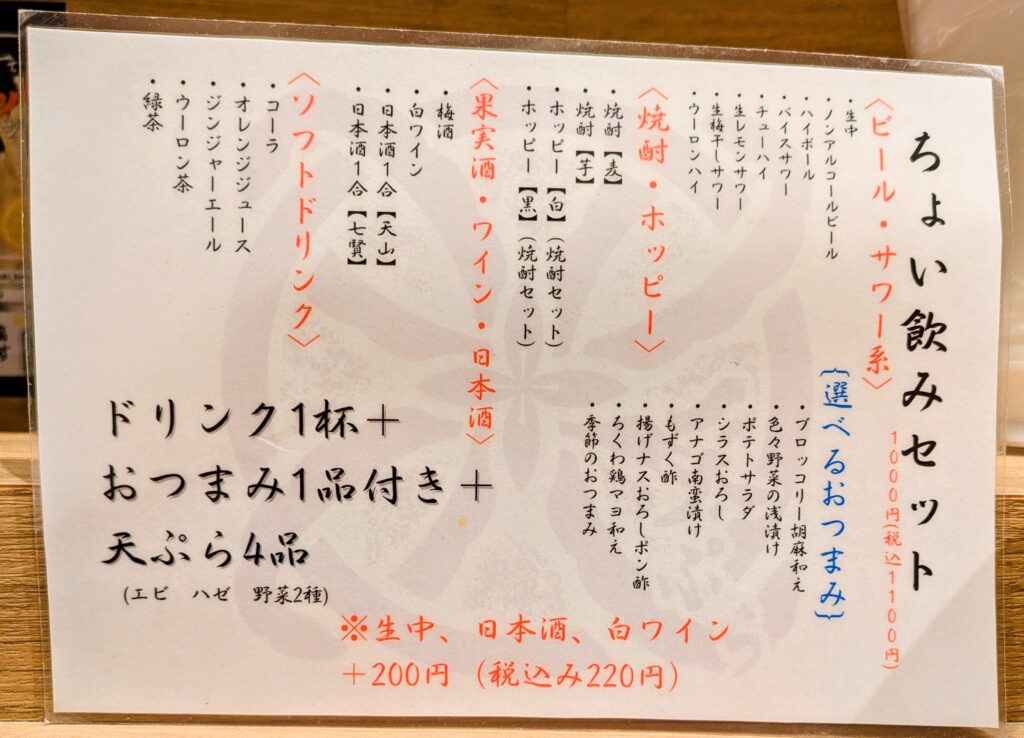 ちょい飲みセット
1000円(税込1100円)
〈ビール・サワー系〉
・生中
・ノンアルコールビール
・ハイボール
・バイスサワー
・チューハイ
・生レモンサワー
・生梅干しサワー
・ウーロンハイ
〈焼酎・ホッピー〉
・焼酎【麦】
・焼酎【芋】
・ホッピー【白】(焼酎セット)
・ホッピー【黒】(焼酎セット)
〈果実酒・ワイン・日本酒〉
・梅酒
・白ワイン
・日本酒1合【天山】
・日本酒1合【七賢】
〈ソフトドリンク〉
・コーラ
・オレンジジュース
・ジンジャーエール
・ウーロン茶
・緑茶
{選べるおつまみ}
・ブロッコリー胡麻和え
・色々野菜の浅漬け
・ポテトサラダ
・シラスおろし
・アナゴ南蛮漬け
・もずく酢
・揚げナスおろしポン酢
・ろくわ鶏マヨ和え
・季節のおつまみ
ドリンク1杯＋
おつまみ1品付き＋
天ぷら4品
(エビ ハゼ 野菜2種)
※生中、日本酒、白ワイン
＋200円（税込み220円）